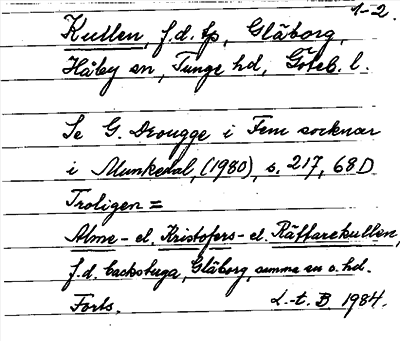 1-2.
Kullen, f.d. lp, Glåborg,
Håby sn, Tunge hd, Göteb. l.
Se G. Drougge i Fem socknar
i Munkedal, (1980), s. 217, 68D
Troligen =
Alme- el. Kristofers- el. Räffarekullen,
f.d. backstuga, Glåborg, samma sn o. hd.
Forts. L.-t. B 1984.